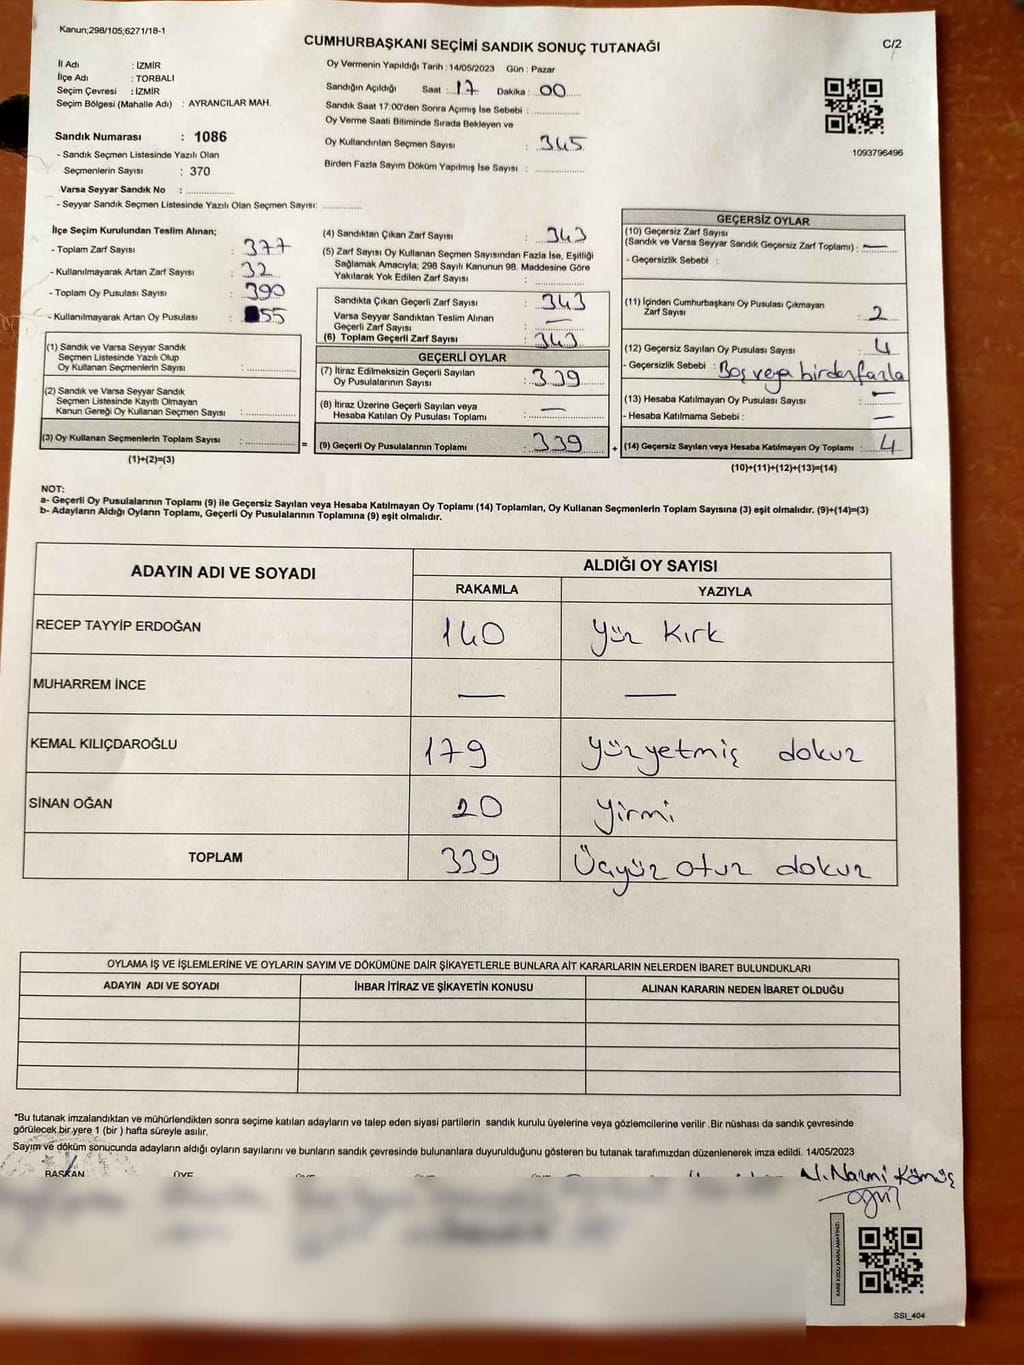 Kanun;298/105;6271/18-1
CUMHURBAŞKANI SEÇİMİ SANDIK SONUÇ TUTANAĞI
C/2
İl Adı : İZMİR
İlçe Adı : TORBALI
Seçim Çevresi : İZMİR
Seçim Bölgesi (Mahalle Adı) : AYRANCILAR MAH.
Sandık Numarası : 1086
- Sandık Seçmen Listesinde Yazılı Olan
Seçmenlerin Sayısı : 370
Varsa Seyyar Sandık No : ..............
- Seyyar Sandık Seçmen Listesinde Yazılı Olan Seçmen Sayısı: ............
Oy Vermenin Yapıldığı Tarih : 14/05/2023 Gün : Pazar
Sandığın Açıldığı Saat : 17 Dakika : 00
Sandık Saat 17:00'den Sonra Açımış İse Sebebi : ..............
Oy Verme Saati Bitiminde Sırada Bekleyen ve
Oy Kullandırılan Seçmen Sayısı : 345
Birden Fazla Sayım Döküm Yapılmış İse Sayısı : ..............
1093796496
İlçe Seçim Kurulundan Teslim Alınan;
- Toplam Zarf Sayısı : 377
- Kullanılmayarak Artan Zarf Sayısı : 32
- Toplam Oy Pusulası Sayısı : 390
- Kullanılmayarak Artan Oy Pusulası : 55
(1) Sandık ve Varsa Seyyar Sandık
Seçmen Listesinde Yazılı Olup
Oy Kullanan Seçmenlerin Sayısı : ..............
(2) Sandık ve Varsa Seyyar Sandık
Seçmen Listesinde Kayıtlı Olmayan
Kanun Gereği Oy Kullanan Seçmen Sayısı : ..............
(3) Oy Kullanan Seçmenlerin Toplam Sayısı : ..............
(1)+(2)=(3)
(4) Sandıktan Çıkan Zarf Sayısı : 343
(5) Zarf Sayısı Oy Kullanan Seçmen Sayısından Fazla İse, Eşitliği
Sağlamak Amacıyla; 298 Sayılı Kanunun 98. Maddesine Göre
Yakılarak Yok Edilen Zarf Sayısı : ..............
Sandıkta Çıkan Geçerli Zarf Sayısı : 343
Varsa Seyyar Sandıktan Teslim Alınan
Geçerli Zarf Sayısı : —
(6) Toplam Geçerli Zarf Sayısı : 343
GEÇERLİ OYLAR
(7) İtiraz Edilmeksizin Geçerli Sayılan
Oy Pusulalarının Sayısı : 339
(8) İtiraz Üzerine Geçerli Sayılan veya
Hesaba Katılan Oy Pusulası Toplamı : —
= (9) Geçerli Oy Pusulalarının Toplamı : 339
GEÇERSİZ OYLAR
(10) Geçersiz Zarf Sayısı
(Sandık ve Varsa Seyyar Sandık Geçersiz Zarf Toplamı) : —
- Geçersizlik Sebebi :
(11) İçinden Cumhurbaşkanı Oy Pusulası Çıkmayan
Zarf Sayısı : 2
(12) Geçersiz Sayılan Oy Pusulası Sayısı : 4
- Geçersizlik Sebebi : Boş veya birden fazla
(13) Hesaba Katılmayan Oy Pusulası Sayısı : —
- Hesaba Katılmama Sebebi : —
+ (14) Geçersiz Sayılan veya Hesaba Katılmayan Oy Toplamı : 4
(10)+(11)+(12)+(13)=(14)
NOT:
a- Geçerli Oy Pusulalarının Toplamı (9) ile Geçersiz Sayılan veya Hesaba Katılmayan Oy Toplamı (14) Toplamları, Oy Kullanan Seçmenlerin Toplam Sayısına (3) eşit olmalıdır. (9)+(14)=(3)
b- Adayların Aldığı Oyların Toplamı, Geçerli Oy Pusulalarının Toplamına (9) eşit olmalıdır.
ADAYIN ADI VE SOYADI
ALDIĞI OY SAYISI
RAKAMLA YAZIYLA
RECEP TAYYİP ERDOĞAN 140 Yüz Kırk
MUHARREM İNCE — —
KEMAL KILIÇDAROĞLU 179 Yüzyetmiş dokuz
SİNAN OĞAN 20 Yirmi
TOPLAM 339 Üçyüz otuz dokuz
OYLAMA İŞ VE İŞLEMLERİNE VE OYLARIN SAYIM VE DÖKÜMÜNE DAİR ŞİKAYETLERLE BUNLARA AİT KARARLARIN NELERDEN İBARET BULUNDUKLARI
ADAYIN ADI VE SOYADI İHBAR İTİRAZ VE ŞİKAYETİN KONUSU ALINAN KARARIN NEDEN İBARET OLDUĞU
*Bu tutanak imzalandıktan ve mühürlendikten sonra seçime katılan adayların ve talep eden siyasi partilerin sandık kurulu üyelerine veya gözlemcilerine verilir .Bir nüshası da sandık çevresinde
görülecek bir yere 1 (bir ) hafta süreyle asılır.
Sayım ve döküm sonucunda adayların aldığı oyların sayılarını ve bunların sandık çevresinde bulunanlara duyurulduğunu gösteren bu tutanak tarafımızdan düzenlenerek imza edildi. 14/05/2023
BAŞKAN ÜYE
N. Nazmi Kömüş
KARE KODU KARALAMAYINIZ!
SSI_404